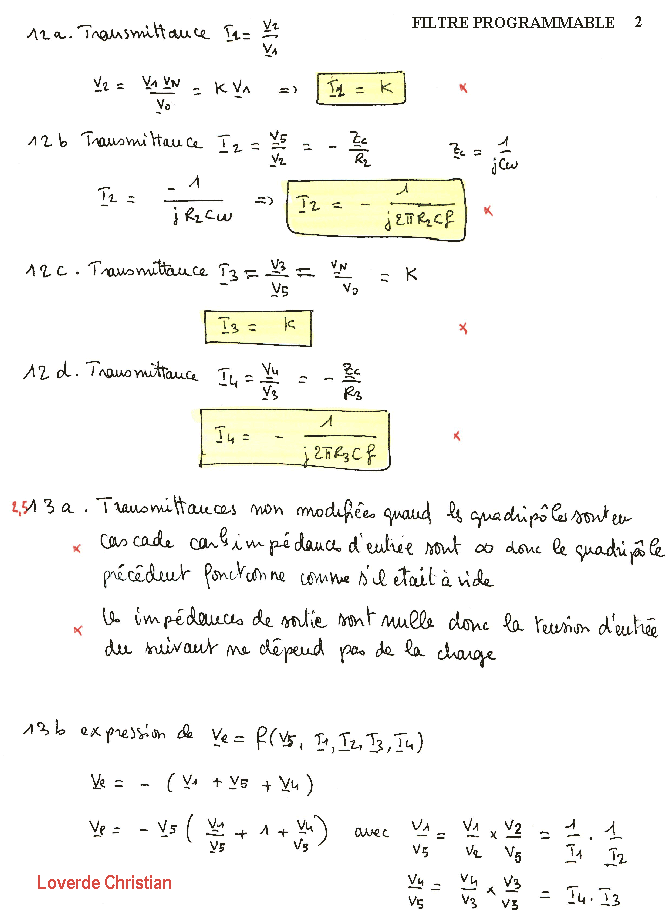 FILTRE PROGRAMMABLE 2
12a. Transmittance T1 = V2/V1
V2 = V1 VN/V0 = K V1 => T1 = K ×
12b Transmittance T2 = V5/V2 = - Zc/R2 Zc = 1/jCω
T2 = -1/jR2Cω => T2 = - 1/j2πR2Cf ×
12c. Transmittance T3 = V3/V5 = VN/V0 = K
T3 = K ×
12d. Transmittance T4 = V4/V3 = - Zc/R3
T4 = - 1/j2πR3Cf ×
2,5 13a. Transmittances non modifiées quand les quadripôles sont en
× cascade car les impédances d'entrée sont ∞ donc le quadripôle
précédent fonctionne comme s'il etait à vide
× les impédances de sortie sont nulle donc la tension d'entrée
du suivant ne dépend pas de la charge
13b expression de Ve = f(V5, T1, T2, T3, T4)
Ve = - (V1 + V5 + V4)
Ve = - V5 (V1/V5 + 1 + V4/V5) avec V1/V5 = V1/V2 × V2/V5 = 1/T1 . 1/T2
V4/V5 = V4/V3 × V3/V5 = T4 . T3
Loverde Christian